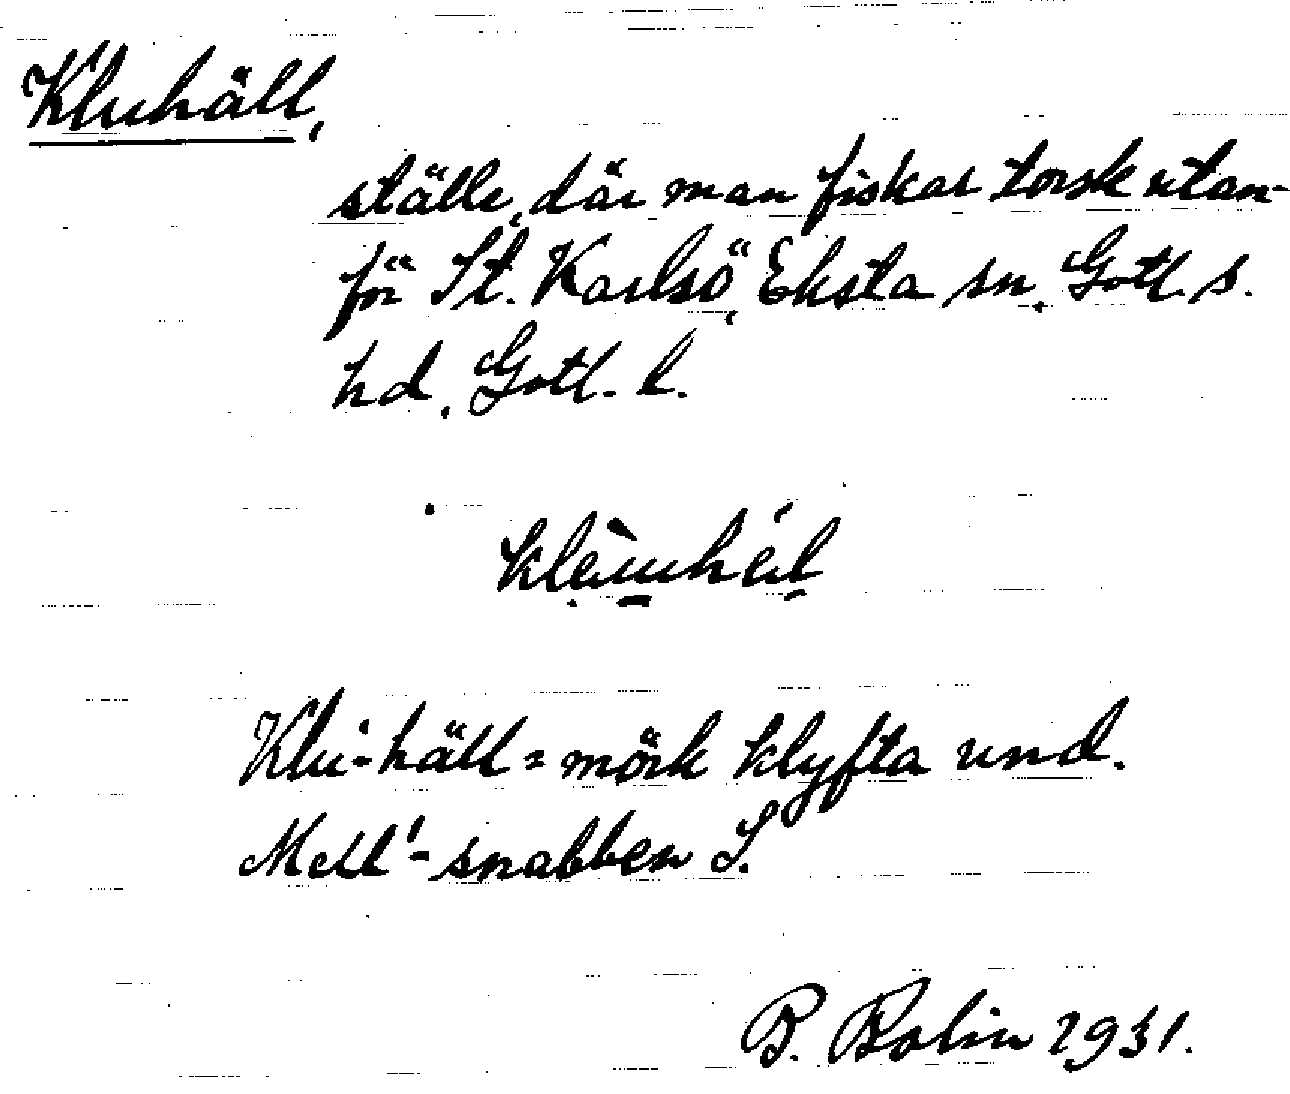 Kluhäll,
ställe, där man fiskar torsk utan-
för St. Karlsö, Eksta sn, Gotl. s.
hd, Gotl. l.
Klu-häll = mörk klyfta und.
Mell'-snabben S.
B. Bolin 1931.